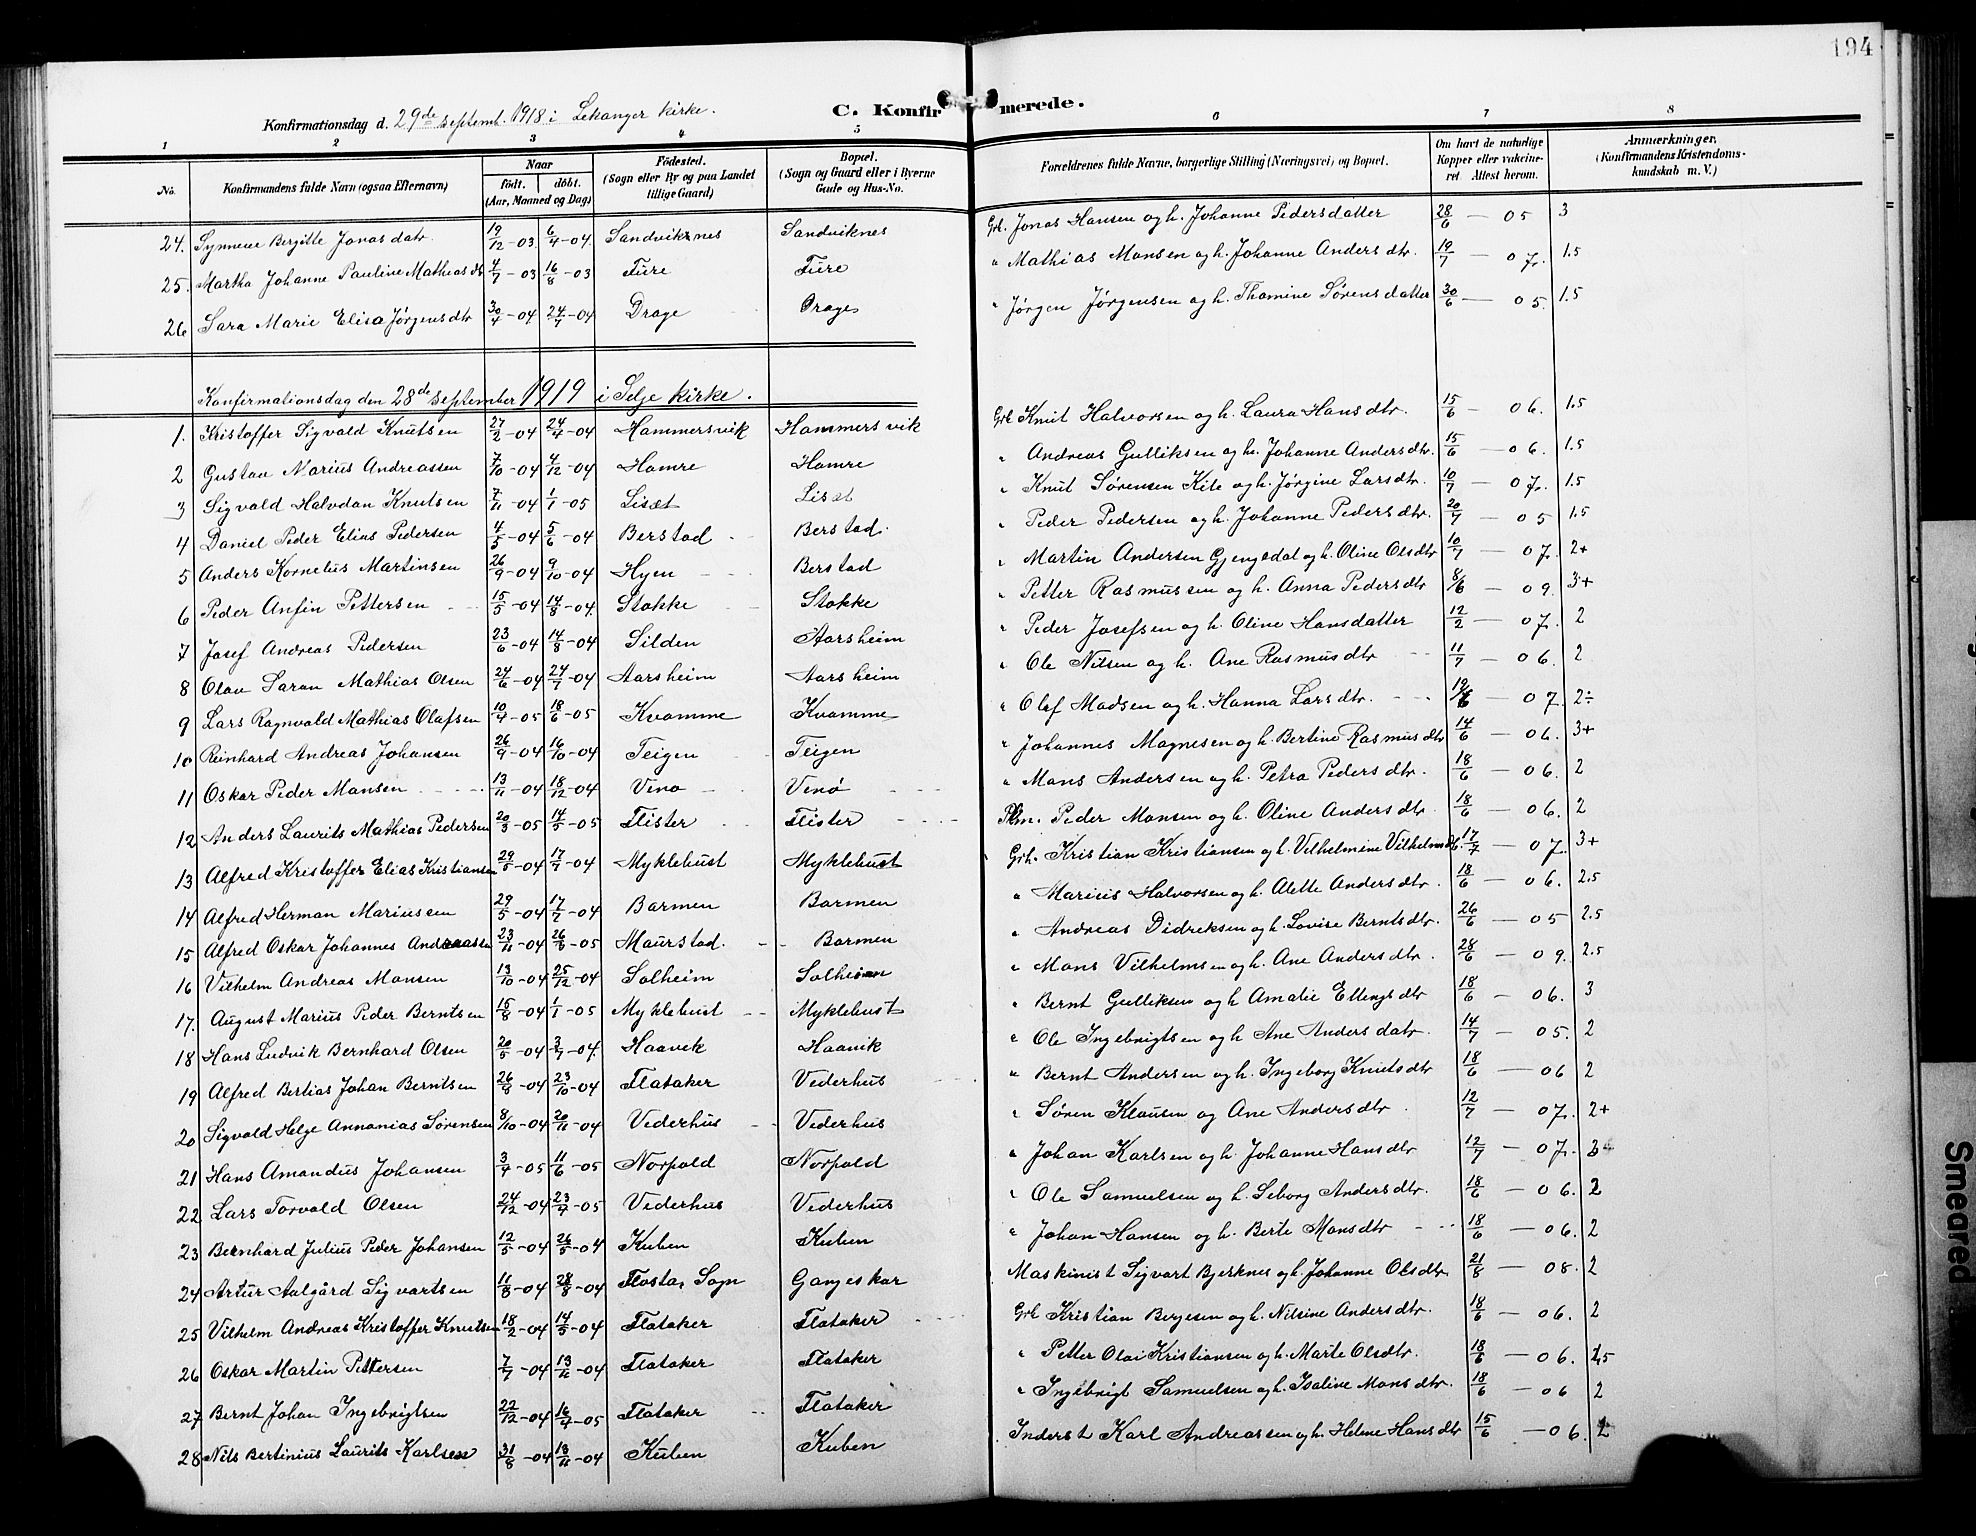 194
Konfirmationsdag d. 29de septemb. 1918 i Lekanger kirke. C. Konfirmerede.
1 2 3 4 5 6 7 8
No. Konfirmandens fulde Navn (ogsaa Efternavn) Naar født. døbt. (Aar, Maaned og Dag) Fødested. (Sogn eller By og paa Landet tillige Gaard) Bopæl. (Sogn og Gaard eller i Byerne Gade og Hus-No. Forældrenes fulde Navne, borgerlige Stilling (Næringsvei) og Bopæl. Om havt de naturlige Kopper eller vakcineret Attest herom. Anmærkninger, (Konfirmandens Kristendomskundskab m. V.)
24. Synneve Bergitte Jonasdatr. 19/12-03 6/4-04. Sandviknes Sandviknes Grb. Jonas Hansen og h. Johanne Pedersdatter 28/6 — 05 3
25. Martha Johanne Pauline Mathiasdtr 4/7-03 16/8-03 Fure Fure " Mathias Monsen og h. Johanne Andersdtr. 19/7 — 07. 1.5
26 Sara Marie Elisa Jørgensdtr 30/4-04 24/7-04 Drage Drages " Jørgen Jørgensen og h. Thomine Sørensdatter 30/6 — 05. 1.5
Konfirmationsdag den 28de september 1919 i Selje kirke.
1. Kristoffer Sigvald Knutsen 27/2-04 24/4-04 Hammersvik Hammersvik Grb Knut Halvorsen og h. Laura Hansdtr. 15/6 — 06. 1.5
2 Gustav Marius Andreassen 7/10-04 4/12-04 Hamre Hamre " Andreas Gulliksen og h. Johanne Andersdtr. 15/6 — 06. 1.5
3 Sigvald Halvdan Knutsen 7/11-04 1/1-05 Lisæt Lisæt " Knut Sørensen Kile og h. Jørgine Larsdtr. 10/7 — 07. 1.5
4 Daniel Peder Elias Pedersen 4/5-04 5/6-04 Berstad Berstad. " Peder Pedersen og h. Johanne Pedersdtr. 20/7 — 05 1.5
5 Anders Kornelius Martinsen 26/9-04 9/10-04 Hyen Berstad " Martin Andersen Gjengedal og h. Oline Olsdtr 10/7 — 07. 2+
6 Peder Anfin Pettersen 15/5-04 14/8-04. Stokke Stokke " Petter Rasmussen og h. Anna Pedersdtr 8/6 — 09. 3+
7 Josef Andreas Pedersen 23/6-04 14/8-04 Silden Aarsheim " Peder Josefsen og h. Oline Hansdatter 12/2 — 07. 2
8 Olav Saran Mathias Olsen 24/6-04 24/7-04 Aarsheim Aarsheim " Ole Nilsen og h. Ane Rasmusdtr 11/7 — 06. 2
9 Lars Ragnvald Mathias Olafsen 10/4-05 18/6-05 Kvamme Kvamme " Olef Madsen og h. Hanna Larsdtr. 19/6 — 07. 2÷
10 Reinhard Andreas Johansen 26/9-04 16/10-04 Teigen Teigen " Johannes Magnesen og h. Bertine Rasmusdtr 14/6 — 06. 3+
11 Oskar Peder Monsen 13/11-04 18/12-04 Venø Venø " Mons Andersen og h. Petra Pedersdtr. 18/6 — 06. 2
12 Anders Laurits Mathias Pedersen 20/3-05 14/5-05 Flister Flister Plm. Peder Monsen og h. Oline Andersdtr. 18/6 — 06. 2
13 Alfred Kristoffer Elias Kristiansen 29/5-04 17/7-04 Myklebust Myklebust Grb. Kristian Kristiansen og h. Vilhelmine Vilhelmsdtr. 17/7 — 07. 3+
14 Alfred Herman Mariussen 29/5-04 17/7-04 Barmen Barmen " Marius Halvorsen og h. Alette Andersdtr. 18/6 — 06. 2.5
15 Alfred Oskar Johannes Andreassen 23/11-04 26/3-05 Maurstad. Barmen " Andreas Didreksen og h. Lovise Berntsdtr. 26/6 — 05 2.5
16 Vilhelm Andreas Monsen 13/10-04 25/12-04 Solheim Solheim " Mons Vilhelmsen og h. Ane Andersdtr. 28/6 — 09. 2.5
17. August Marius Peder Berntsen 15/8-04 1/1-05 Myklebust Myklebust " Bernt Gulliksen og h Amalie Ellengsdtr 18/6 — 06. 3
18 Hans Ludvik Bernhard Olsen 20/5-04 3/7-04. Haavek Haavik " Ole Ingebrigtsen og h Ane Andersdatr. 14/7 — 05. 2
19 Alfred Bertias Johan Berntsen 26/8-04 23/10-04 Flataker Vederhus " Bernt Andersen og h. Ingeborg Knutsdtr 18/6 — 06 2
20 Sigvald Helge Annanias Sørensen 8/10-04 20/11-04 Vederhus Vederhus " Søren Klausen og Ane Andersdtr. 12/7 — 07. 2+
21 Hans Amandus Johansen 3/4-05 11/6-05 Norpold Norpold " Johan Karlsen og h. Johanne Hansdtr 12/7 — 07. 3
22 Lars Torvald Olsen 24/12-04 23/4-05 Vederhus Vederhus " Ole Samuelsen og h. Seborg Andersdtr. 18/6 — 06. 2
23 Bernhard Julius Peder Johansen 12/5-04 26/5-04 Kuben Kuben " Johan Hansen og h. Berte Monsdtr 18/6 — 06. 2
24 Artur Aalgård Sigvartsen 11/8-04 28/8-04 Flosta, Sogn Gangeskar Maskinist Sigvart Bjerknes og h. Johanne Olsdtr. 21/8 — 08. 2
25 Vilhelm Andreas Kristoffer Knutsen 18/2-04 14/5-04 Flataker Flataker Grb Kristian Bergesen og h. Nilsine Andersdtr. 18/6 — 06. 2
26 Oskar Martin Pettersen 7/7-04 13/11-04 Flataker Flataker " Petter Olai Kristiansen og h. Marte Olsdtr. 18/6 — 06. 2,5
27 Bernt Johan Ingebrigtsen 22/12-04 16/4-05 Flataker Flataker " Ingebrigt Samuelsen og h. Isaline Monsdtr. 18/6 — 06 2
28 Nils Bertinius Laurits Karlsen 31/8-04 13/11-04 Kuben Kuben Inderst Karl Andreassen og h. Helene Hansdtr 15/6 — 06. 2
Smeared